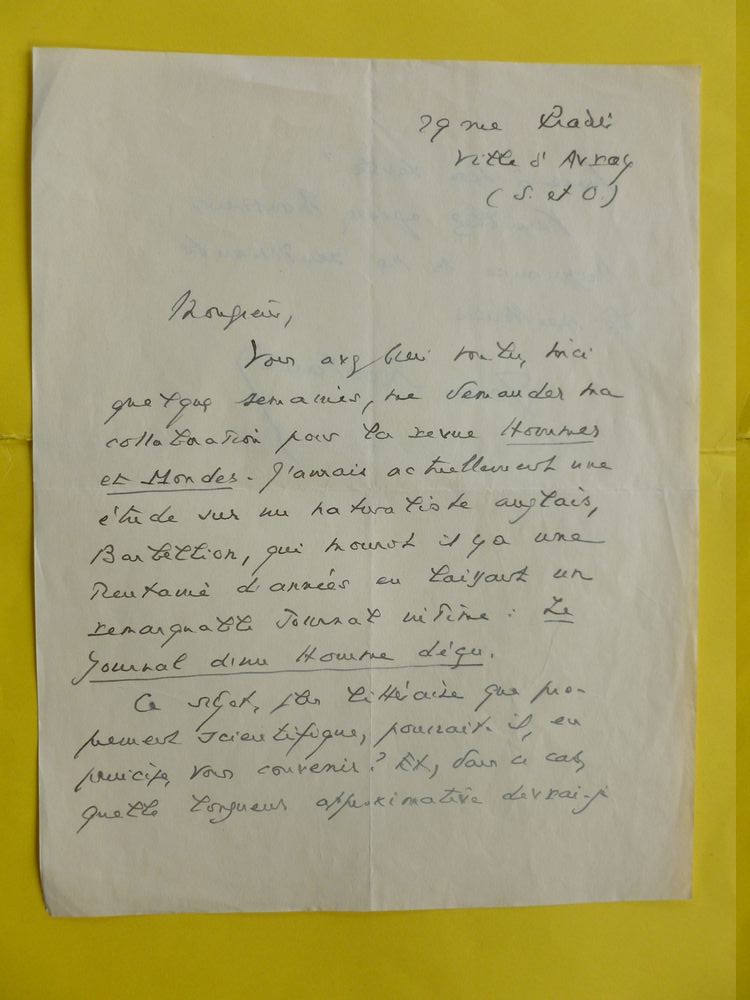 29 rue Pradier
Ville d'Avray
(S. et O.)
Monsieur,
Vous avez bien voulu, voici
quelques semaines, me demander ma
collaboration pour la revue Hommes
et Mondes. J'aurais actuellement une
étude sur un naturaliste anglais,
Barbellion, qui mourut il y a une
trentaine d'années en laissant un
remarquable Journal intime : Le
Journal d'un Homme déçu.
Ce sujet, plus littéraire que pro-
prement scientifique, pourrait-il, en
principe, vous convenir ? Et, dans ce cas,
quelle longueur approximative devrai-je